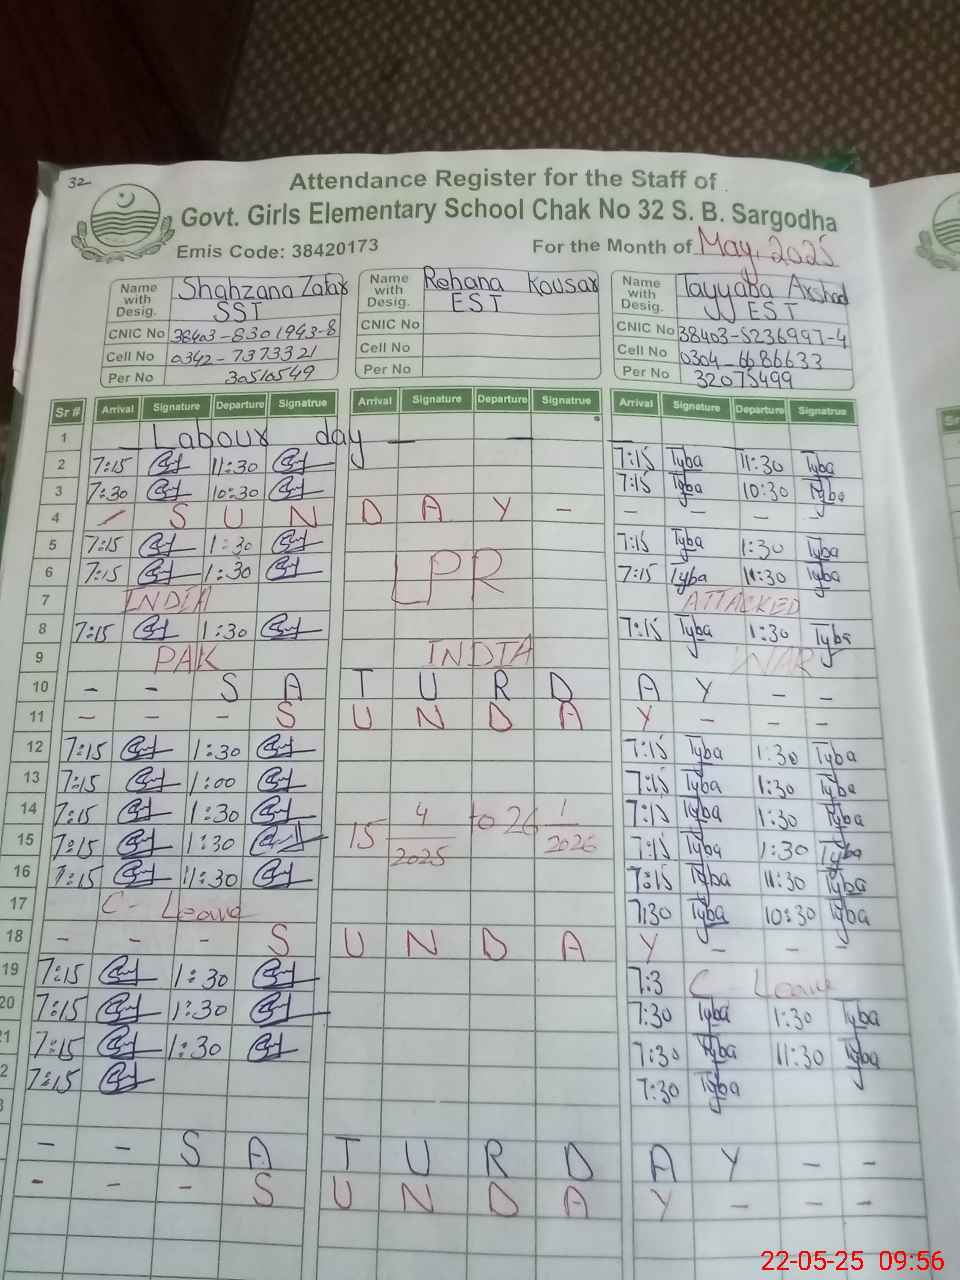 32
Attendance Register for the Staff of
Govt. Girls Elementary School Chak No 32 S. B. Sargodha
Emis Code: 38420173 For the Month of May, 2025
Name with Desig. Shahzana Zafar SST Name with Desig. Rehana Kousar EST Name with Desig. Tayyaba Arshad EST
CNIC No 38403-8301943-8 CNIC No CNIC No 38403-5236997-4
Cell No 0342-7373321 Cell No Cell No 0304-6686633
Per No 30510549 Per No Per No 32075499
Sr # Arrival Signature Departure Signatrue Arrival Signature Departure Signatrue Arrival Signature Departure Signatrue
1 Labour day — — —
2 7:15 11:30 7:15 Tyba 11:30 Tyba
3 7:30 10:30 7:15 Tyba 10:30 Tyba
4 - S U N D A Y - - - - -
5 7:15 1:30 7:15 Tyba 1:30 Tyba
6 7:15 1:30 LPR 7:15 Tyba 11:30 Tyba
7 INDIA ATTACKED
8 7:15 1:30 7:15 Tyba 1:30 Tyba
9 PAK INDIA WAR
10 - - S A T U R D A Y - -
11 - - - S U N D A Y - - -
12 7:15 1:30 7:15 Tyba 1:30 Tyba
13 7:15 1:00 7:15 Tyba 1:30 Tyba
14 7:15 1:30 7:15 Tyba 1:30 Tyba
15 7:15 1:30 15 4/2025 to 26 1/2026 7:15 Tyba 1:30 Tyba
16 7:15 11:30 7:15 Tyba 11:30 Tyba
17 C- Leave 7:30 Tyba 10:30 Tyba
18 - - - S U N D A Y - - -
19 7:15 1:30 7:3 C Leave
20 7:15 1:30 7:30 Tyba 1:30 Tyba
1 7:15 1:30 7:30 Tyba 11:30 Tyba
2 7:15 7:30 Tyba
3
- - S A T U R D A Y - -
- - - S U N D A Y - - -
22-05-25 09:56